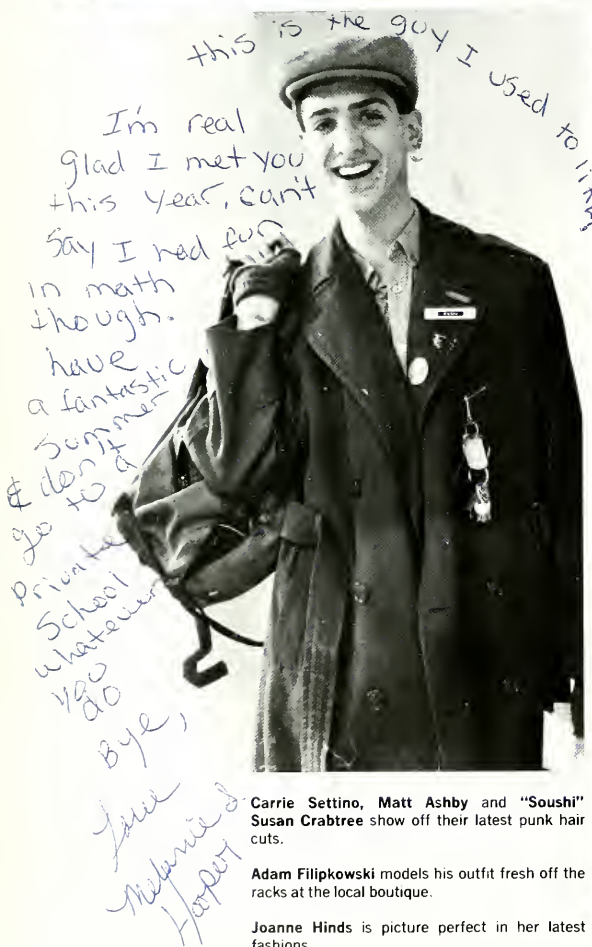 this is the guy I used to like
I'm real
glad I met you
this year, can't
say I had fun
in math
though.
have
a fantastic
summer
& don't
go to a
private
school
whatever
you
do
Bye,
Love
Melanie S
Hooper
Carrie Settino, Matt Ashby and "Soushi"
Susan Crabtree show off their latest punk hair
cuts.
Adam Filipkowski models his outfit fresh off the
racks at the local boutique.
Joanne Hinds is picture perfect in her latest
fashions